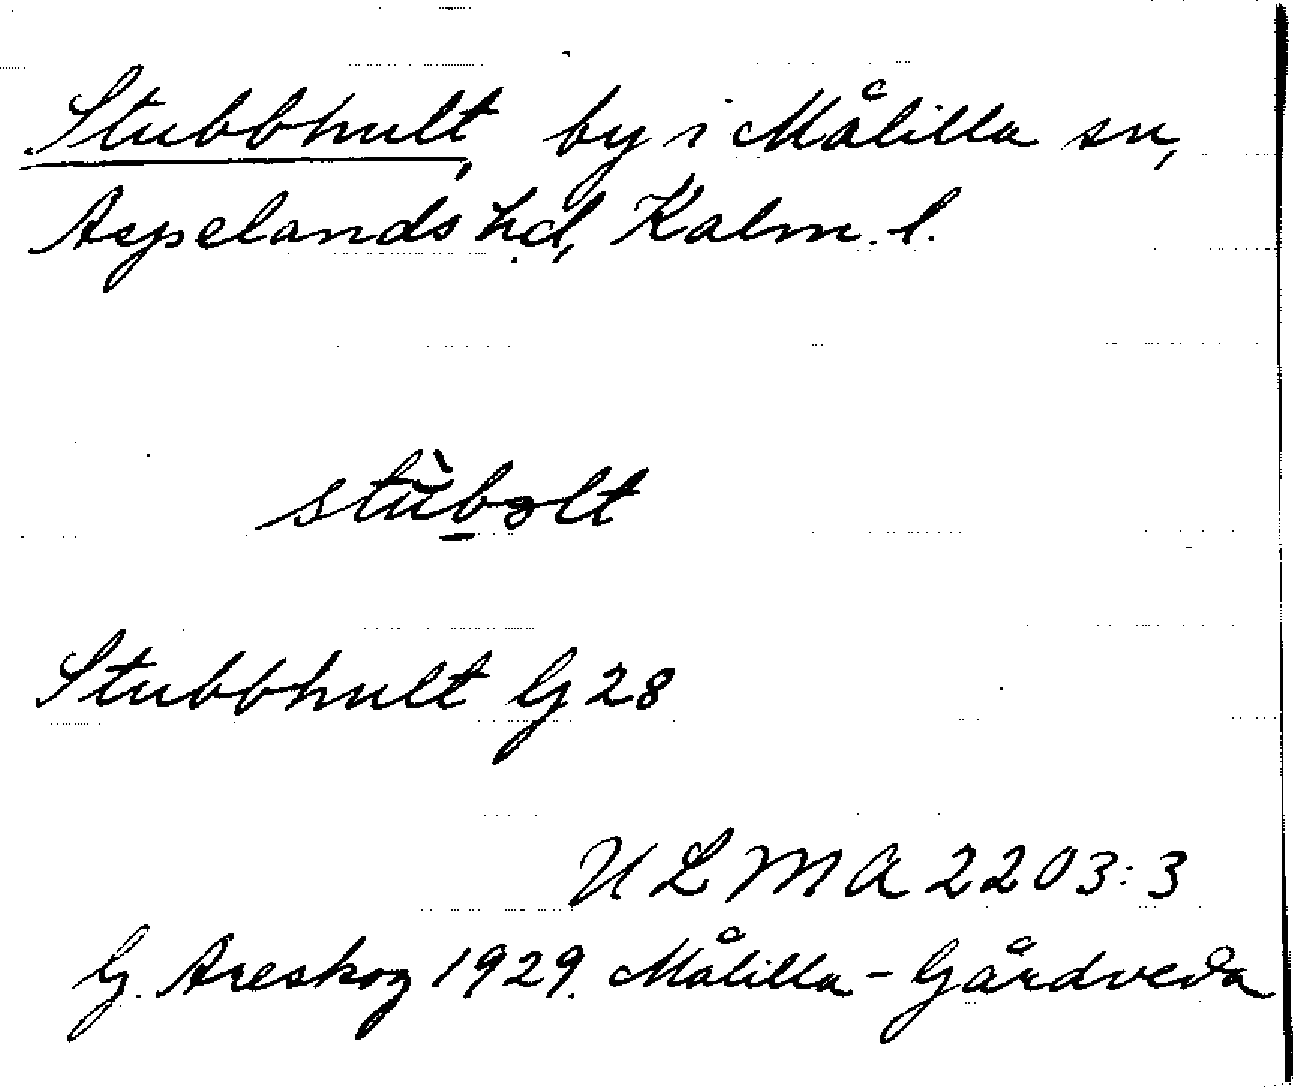 Stubbhult, by i Målilla sn,
Aspelands hd, Kalm. l.
stùb̲ɔlt
Stubbhult G 28
ULMA 2203:3
G. Areskog 1929. Målilla - Gårdveda